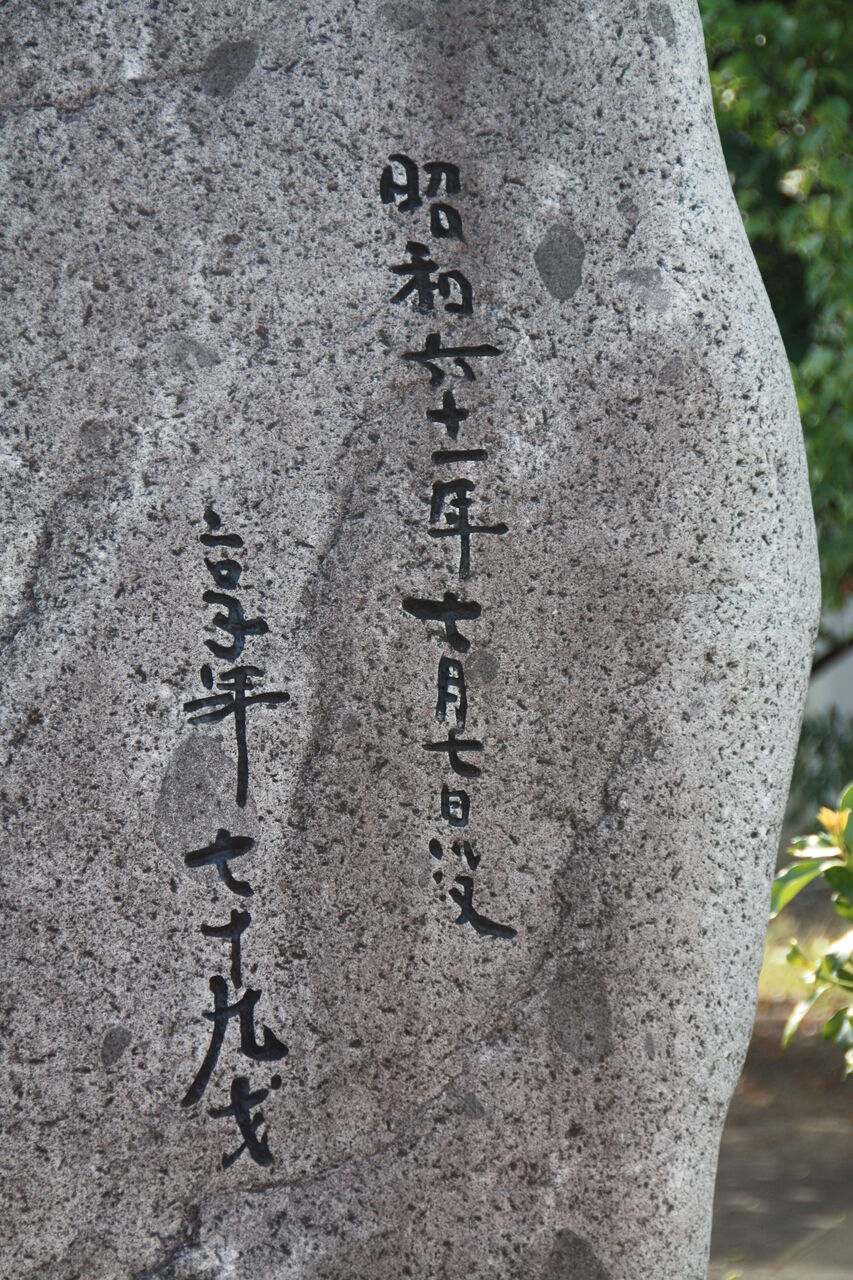 昭和六十一年七月七日没
享年七十九才